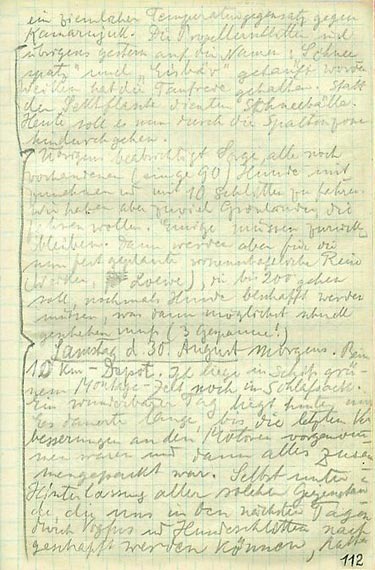 ein ziemlicher Temperaturgegensatz gegen
Kamarujuk. Die Propellerschlitten sind
übrigens gestern auf die Namen "Schnee
spatz" und "Eisbär" getauft worden
hat die Taufrede gehalten. Statt
der Sektflasche dienten Schneebälle.
Heute soll es nun durch die Spaltenzone
hindurchgehen.
Übrigens beabsichtigt Sorge, alle noch
vorhandenen (einige 90) Hunde mit
zunehmen und mit 10 Schlitten zu fahren.
Wir haben aber zuviel Grönländer, die
wollen. Einige müssen zurück
bleiben. Dann werden aber für die
nun fest geplante Reise
(Loewe), die bis 200 gehen
soll, nochmals Hunde beschafft werden
müssen, was dann möglichst schnell
geschehen muß (3 Gespanne!)
Samstag d. 30. August morgens. Beim
km-Depot. Ich liege in Schifs grü-
nem Montage-Zelt noch im Schlafsack.
Ein wunderbarer Tag liegt hinter uns
Es dauerte lange, bis die letzten Ver
besserungen an den Motoren vorgenom-
men waren und dann alles zusam
mengepackt war. Selbst unter
Hinterlassung aller solchen Gegenstän
de die uns in den nächsten Tagen
durch Vigfus und Hundeschlitten nach
geschafft werden können,
112